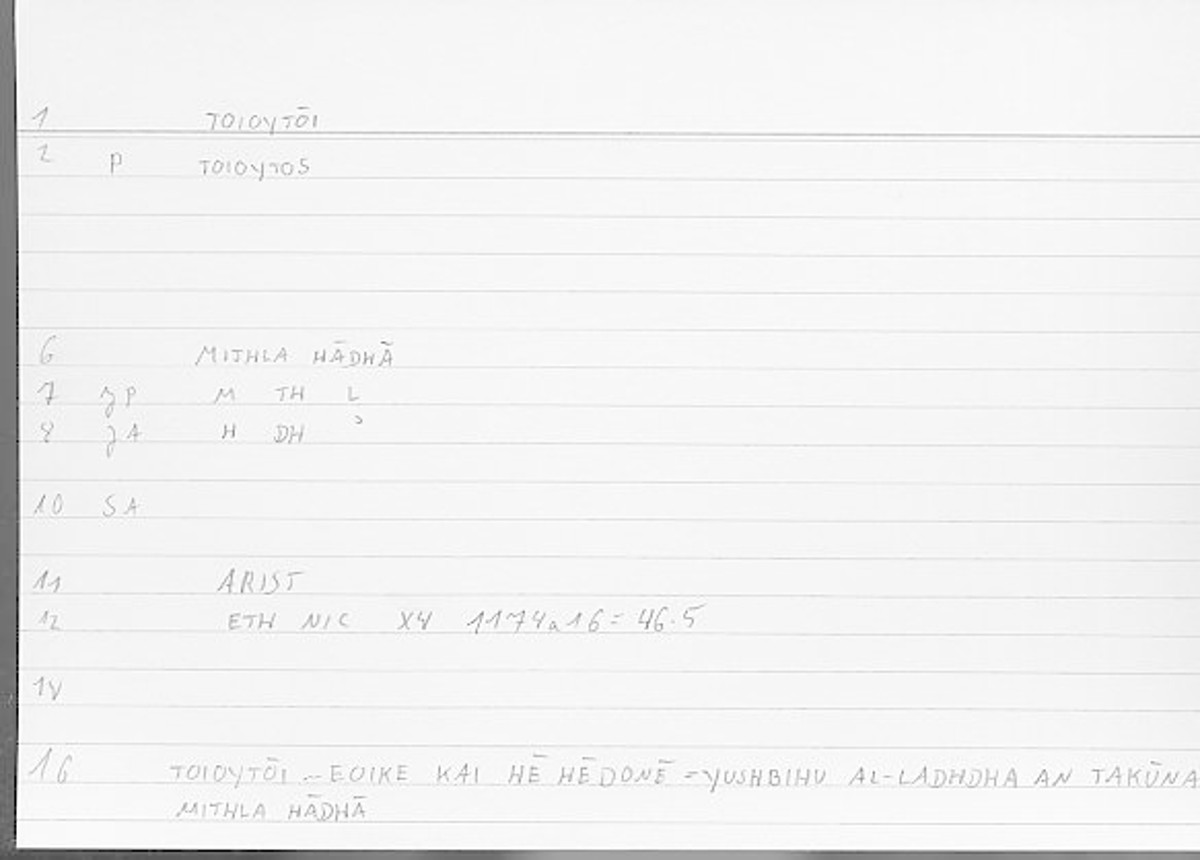 1 TOIOYTŌI
2 P TOIOYTOS
6 MITHLA HĀDHĀ
7 ȝ P M TH L
8 ȝ A H DH ʾ
10 SA
11 ARIST
12 ETH NIC X4 1174a16=46.5
14
16 TOIOYTŌI ... EOIKE KAI HĒ HĒDONĒ = YUSHBIHU AL-LADHDHA AN TAKŪNA
MITHLA HĀDHĀ